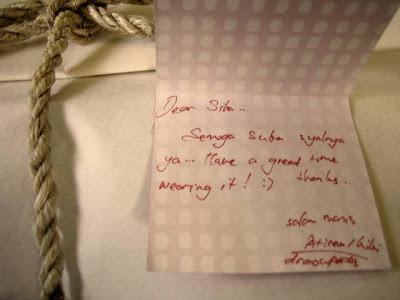 Dear Siba..
Semoga suka syalnya
ya... Have a great time
wearing it! :) thanks..
salam manis